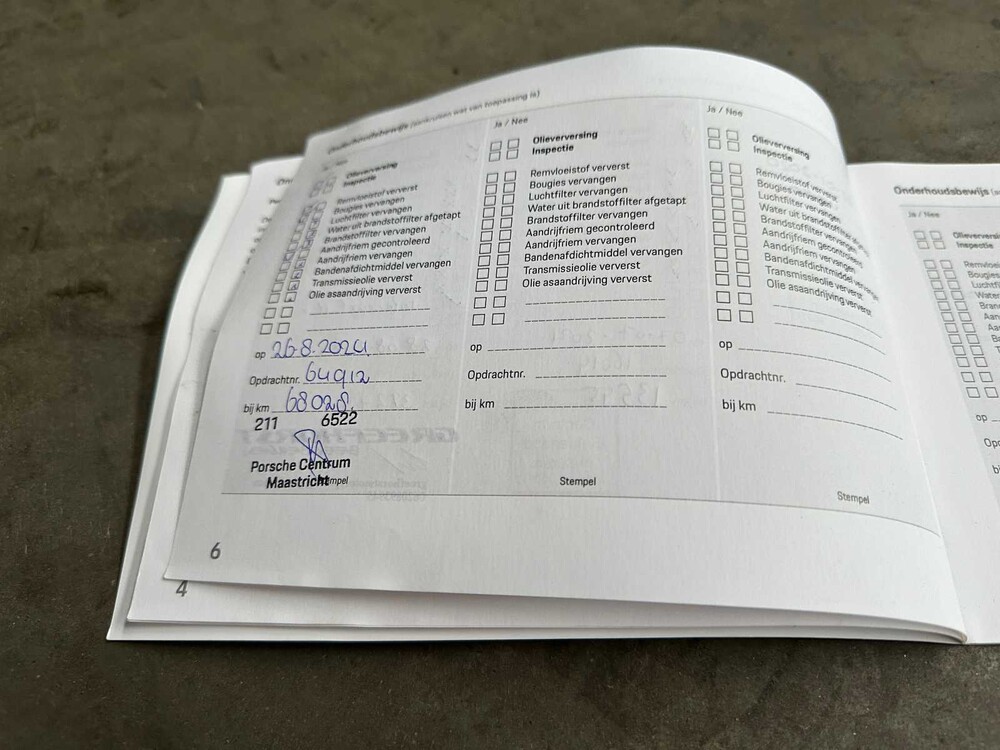 Onderhoudsbewijs (aankruisen wat van toepassing is)
Olieverversing
Inspectie
Remvloeistof ververst
Bougies vervangen
Luchtfilter vervangen
Water uit brandstoffilter afgetapt
Brandstoffilter vervangen
Aandrijfriem gecontroleerd
Aandrijfriem vervangen
Bandenafdichtmiddel vervangen
Transmissieolie ververst
Olie asaandrijving ververst
op 26.8.2024
Opdrachtnr. 64912
bij km 68028.
211 6522
Porsche Centrum
Maastricht
6
4
Ja / Nee
Olieverversing
Inspectie
Remvloeistof ververst
Bougies vervangen
Luchtfilter vervangen
Water uit brandstoffilter afgetapt
Brandstoffilter vervangen
Aandrijfriem gecontroleerd
Aandrijfriem vervangen
Bandenafdichtmiddel vervangen
Transmissieolie ververst
Olie asaandrijving ververst
op
Opdrachtnr.
bij km
Stempel
Ja / Nee
Olieverversing
Inspectie
Remvloeistof ververst
Bougies vervangen
Luchtfilter vervangen
Water uit brandstoffilter
Brandstoffilter vervangen
Aandrijfriem gecontroleerd
Aandrijfriem vervangen
Bandenafdichtmiddel
Transmissieolie ververst
Olie asaandrijving ververst
op
Opdrachtnr.
bij km
Stempel
Onderhoudsbewijs
Ja / Nee
Inspectie
op